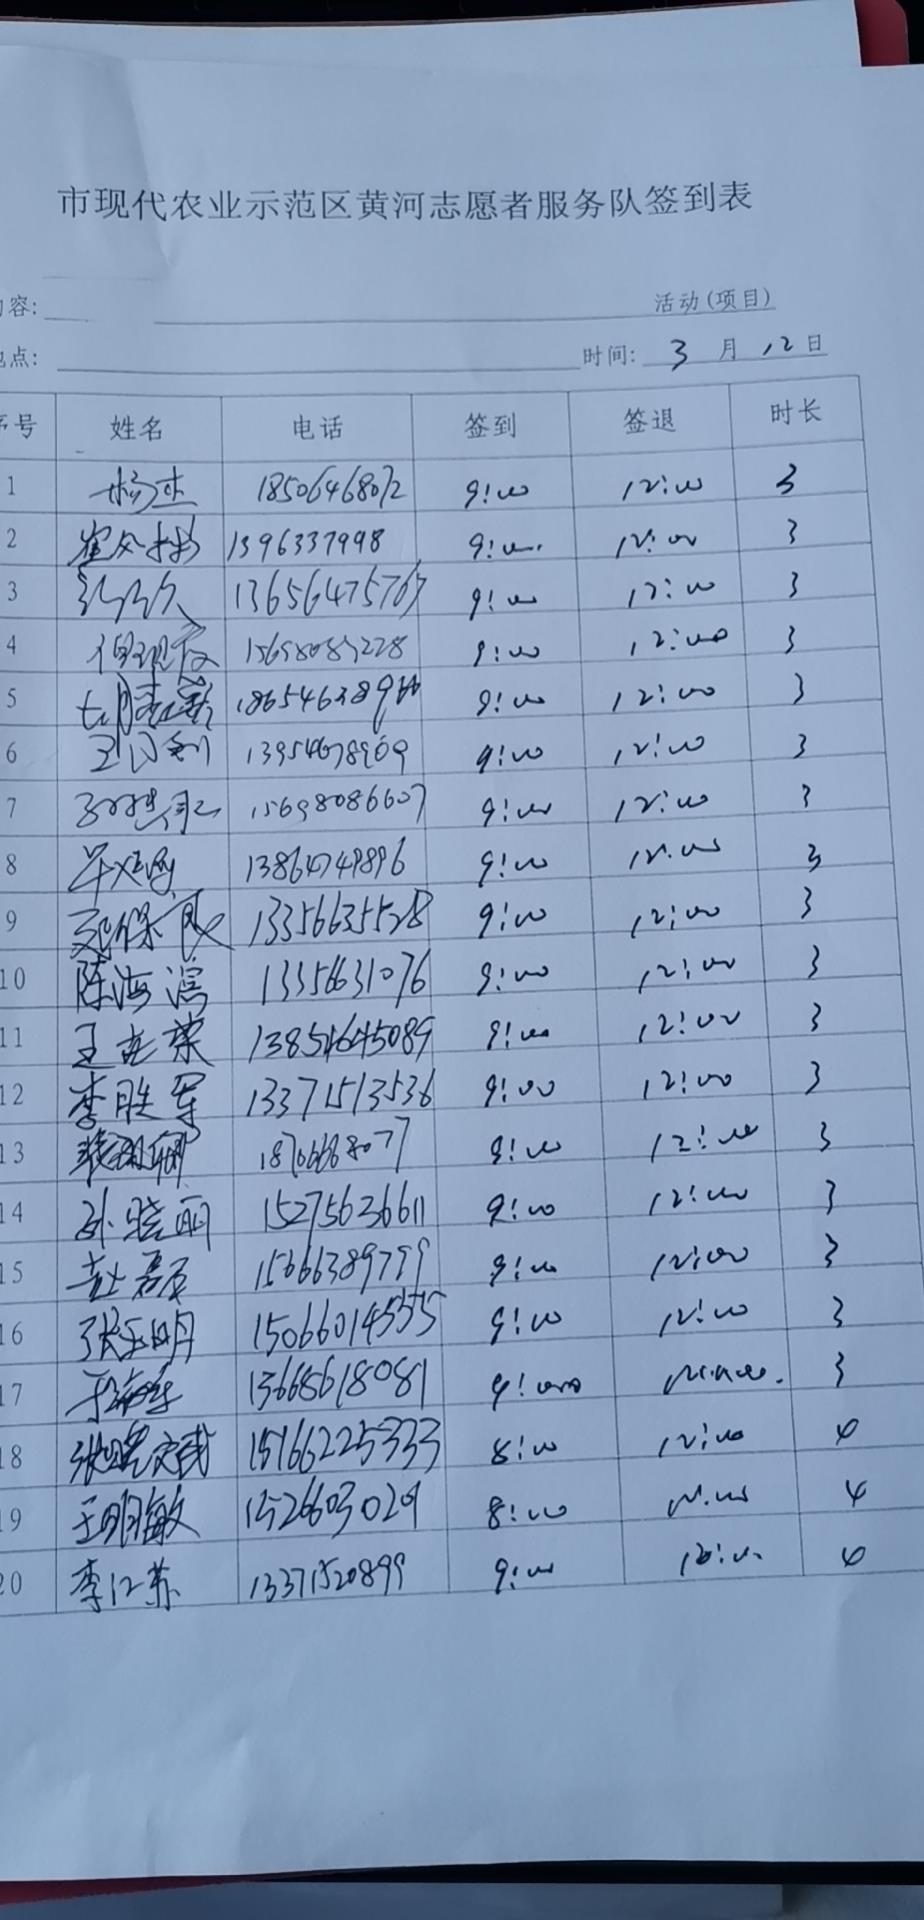 市现代农业示范区黄河志愿者服务队签到表
容: 活动(项目)
点: 时间: 3 月 12 日
序号 姓名 电话 签到 签退 时长
1 杨杰 18506468072 9:00 12:00 3
2 1396337998 9:00 12:00 3
3 13656475767 9:00 12:00 3
4 15698089228 9:00 12:00 3
5 9:00 12:00 3
6 13954678969 9:00 12:00 3
7 15698086607 9:00 12:00 3
8 9:00 12:00 3
9 保良 13356635528 9:00 12:00 3
10 陈海滨 13356631076 9:00 12:00 3
11 王连荣 13854645089 9:00 12:00 3
12 李胜军 13371513536 9:00 12:00 3
13 9:00 12:00 3
14 孙晓丽 15275636611 9:00 12:00 3
15 赵磊 15066389799 9:00 12:00 3
16 张玉明 150660145555 9:00 12:00 3
17 13668618081 9:00 3
18 15166225333 8:00 12:00 4
19 王明敏 1526603029 8:00 4
20 李江苏 13371520899 9:00 4